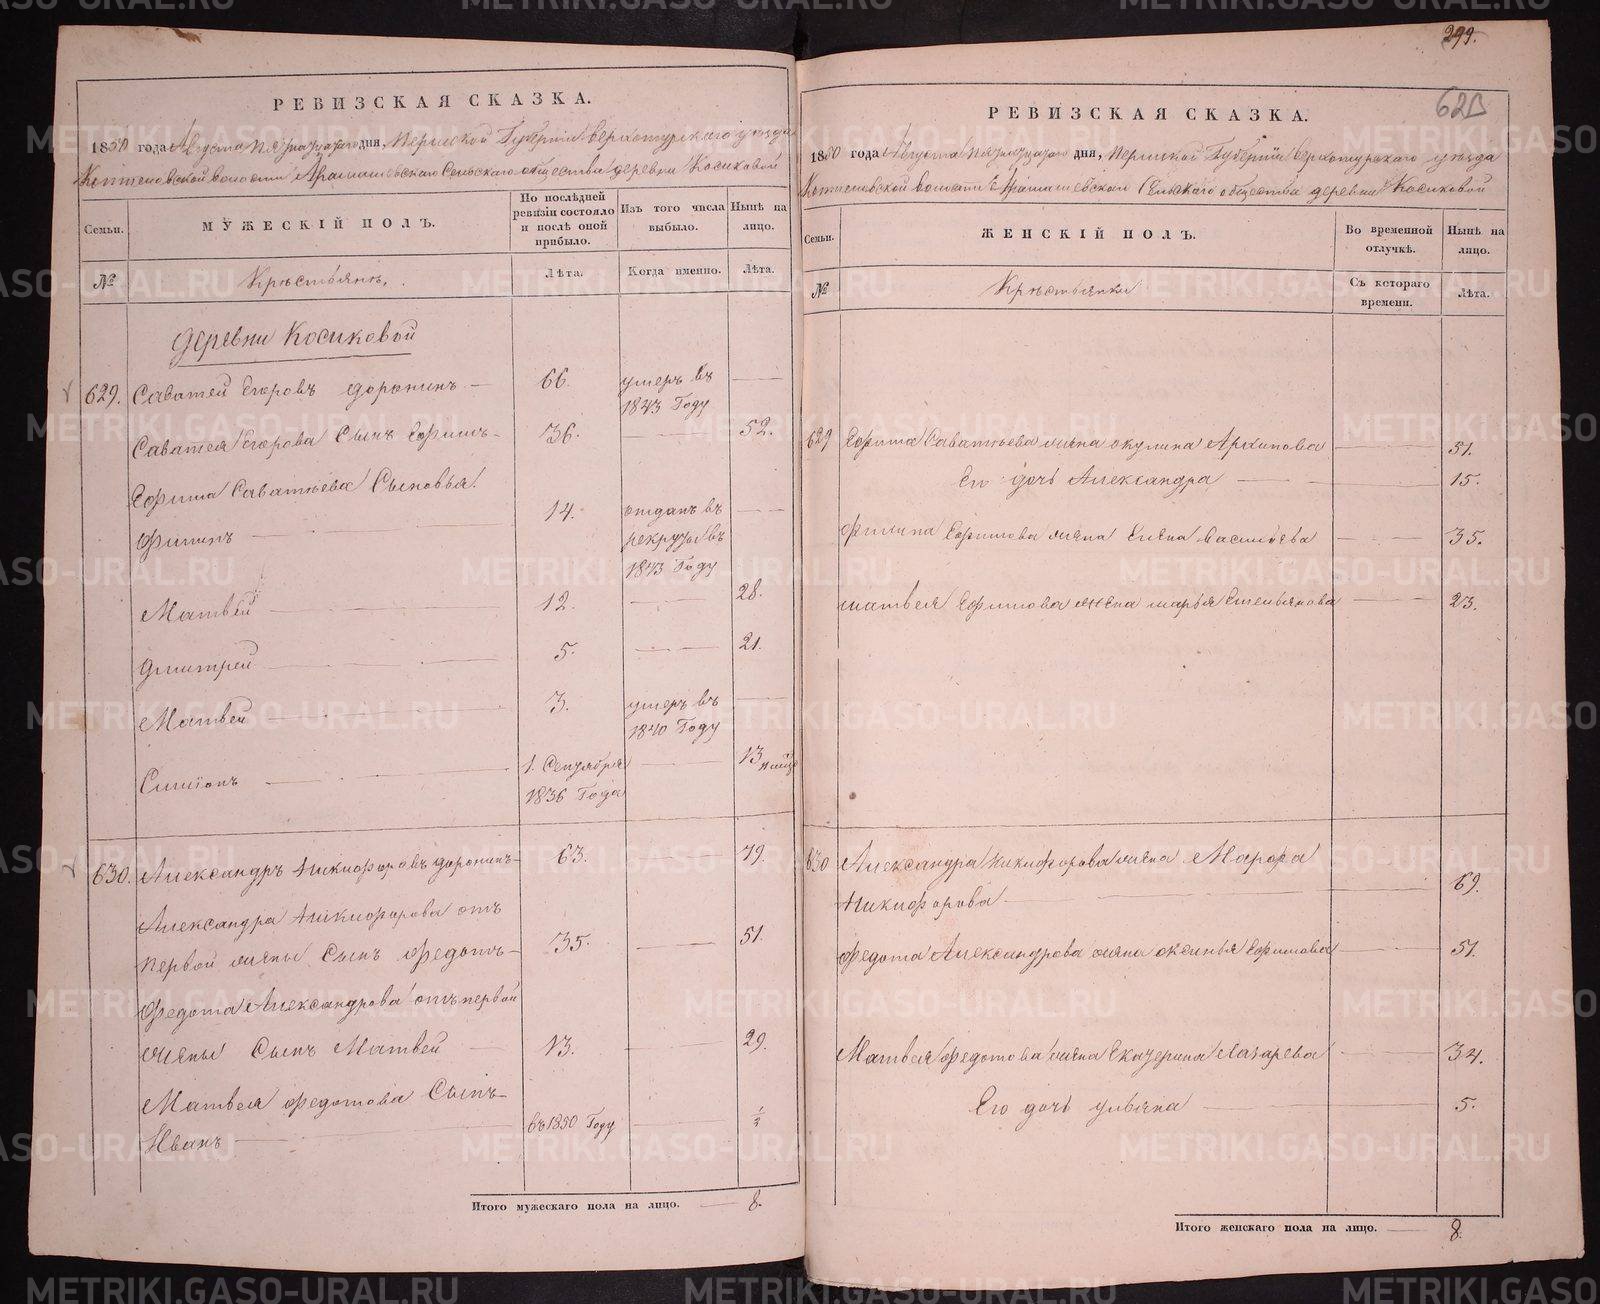 299.
РЕВИЗСКАЯ СКАЗКА.
1850 года Августа пятнадцатого дня, Пермской Губернии Верхотурского уезда
Коптеловской волости Арамашевского Сельского общества деревни Косиковой
Семьи.
МУЖЕСКІЙ ПОЛЪ.
По последней ревизіи состояло и послѣ оной прибыло.
Изъ того числа выбыло.
Нынѣ на лицо.
№
Крестьяне
Лѣта.
Когда именно.
Лѣта.
деревни Косиковой
629. Саватей Егоровъ Доронинъ — 66. умеръ въ 1843 Году
Саватея Егорова Сынъ Ефимъ 36. 52.
Ефима Саватеева Сыновья:
Филипъ 14. отданъ въ рекруты въ 1843 Году
Матвей 12. 28.
Дмитрей 5. 21.
Матвей 3. умеръ въ 1840 Году
Симіонъ 1. Сентября 1836 Года 13
630. Александръ Никифоровъ Доронинъ 63. 79.
Александра Никифорова отъ
первой жены Сынъ Федотъ 35. 51.
Федота Александрова отъ первой
жены Сынъ Матвей 13. 29.
Матвея Федотова Сынъ
Иванъ въ 1850 Году
Итого мужескаго пола на лицо. 8.
РЕВИЗСКАЯ СКАЗКА.
1850 года Августа пятнадцатого дня, Пермской Губернии Верхотурского уезда
Коптеловской волости Арамашевского Сельского общества деревни Косиковой
Семьи.
ЖЕНСКІЙ ПОЛЪ.
Во временной отлучкѣ.
Нынѣ на лицо.
№
Крестьянки
Съ котораго времени.
Лѣта.
629 Ефима Саватеева жена Окулина Архипова 51.
Его дочь Александра 15.
Филипа Ефимова жена Елена Васильева 35.
Матвея Ефимова жена Марья Емельянова 23.
630 Александра Никифорова жена
Никифорова 69.
Федота Александрова жена Оксинья Ефимова 51.
Матвея Федотова жена Екатерина Лазарева 34.
Его дочь Ульяна 5.
Итого женскаго пола на лицо. 8.
METRIKI.GASO-URAL.RU